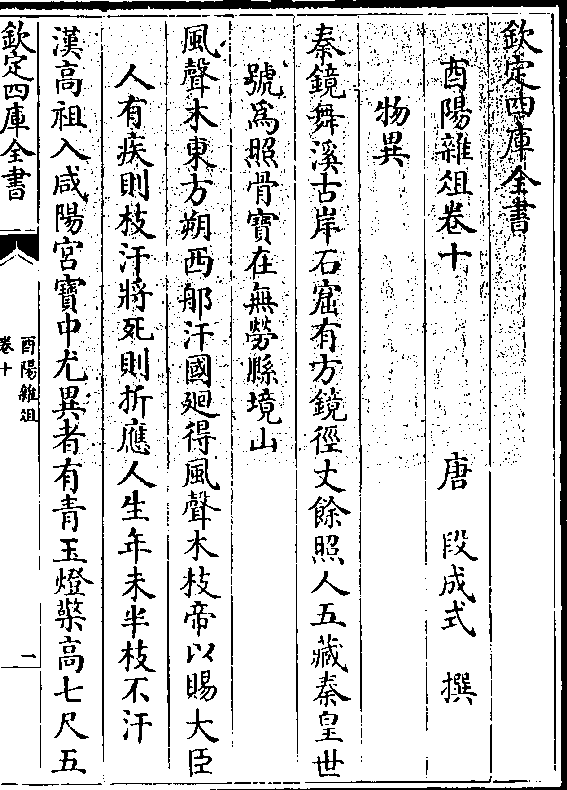 欽定四庫全書
酉陽雜俎卷十
唐 段成式 撰
物異
秦鏡舞溪古岸石窟有方鏡徑丈餘照人五藏秦皇世
號爲照骨寶在無勞縣境山
風聲木東方朔西郍汗國廻得風聲木枝帝以賜大臣
人有疾則枝汗將死則折應人生年未半枝不汗
漢高祖入咸陽宮寶中尤異者有青玉燈檠高七尺五
欽定四庫全書
酉陽雜俎
卷十
一